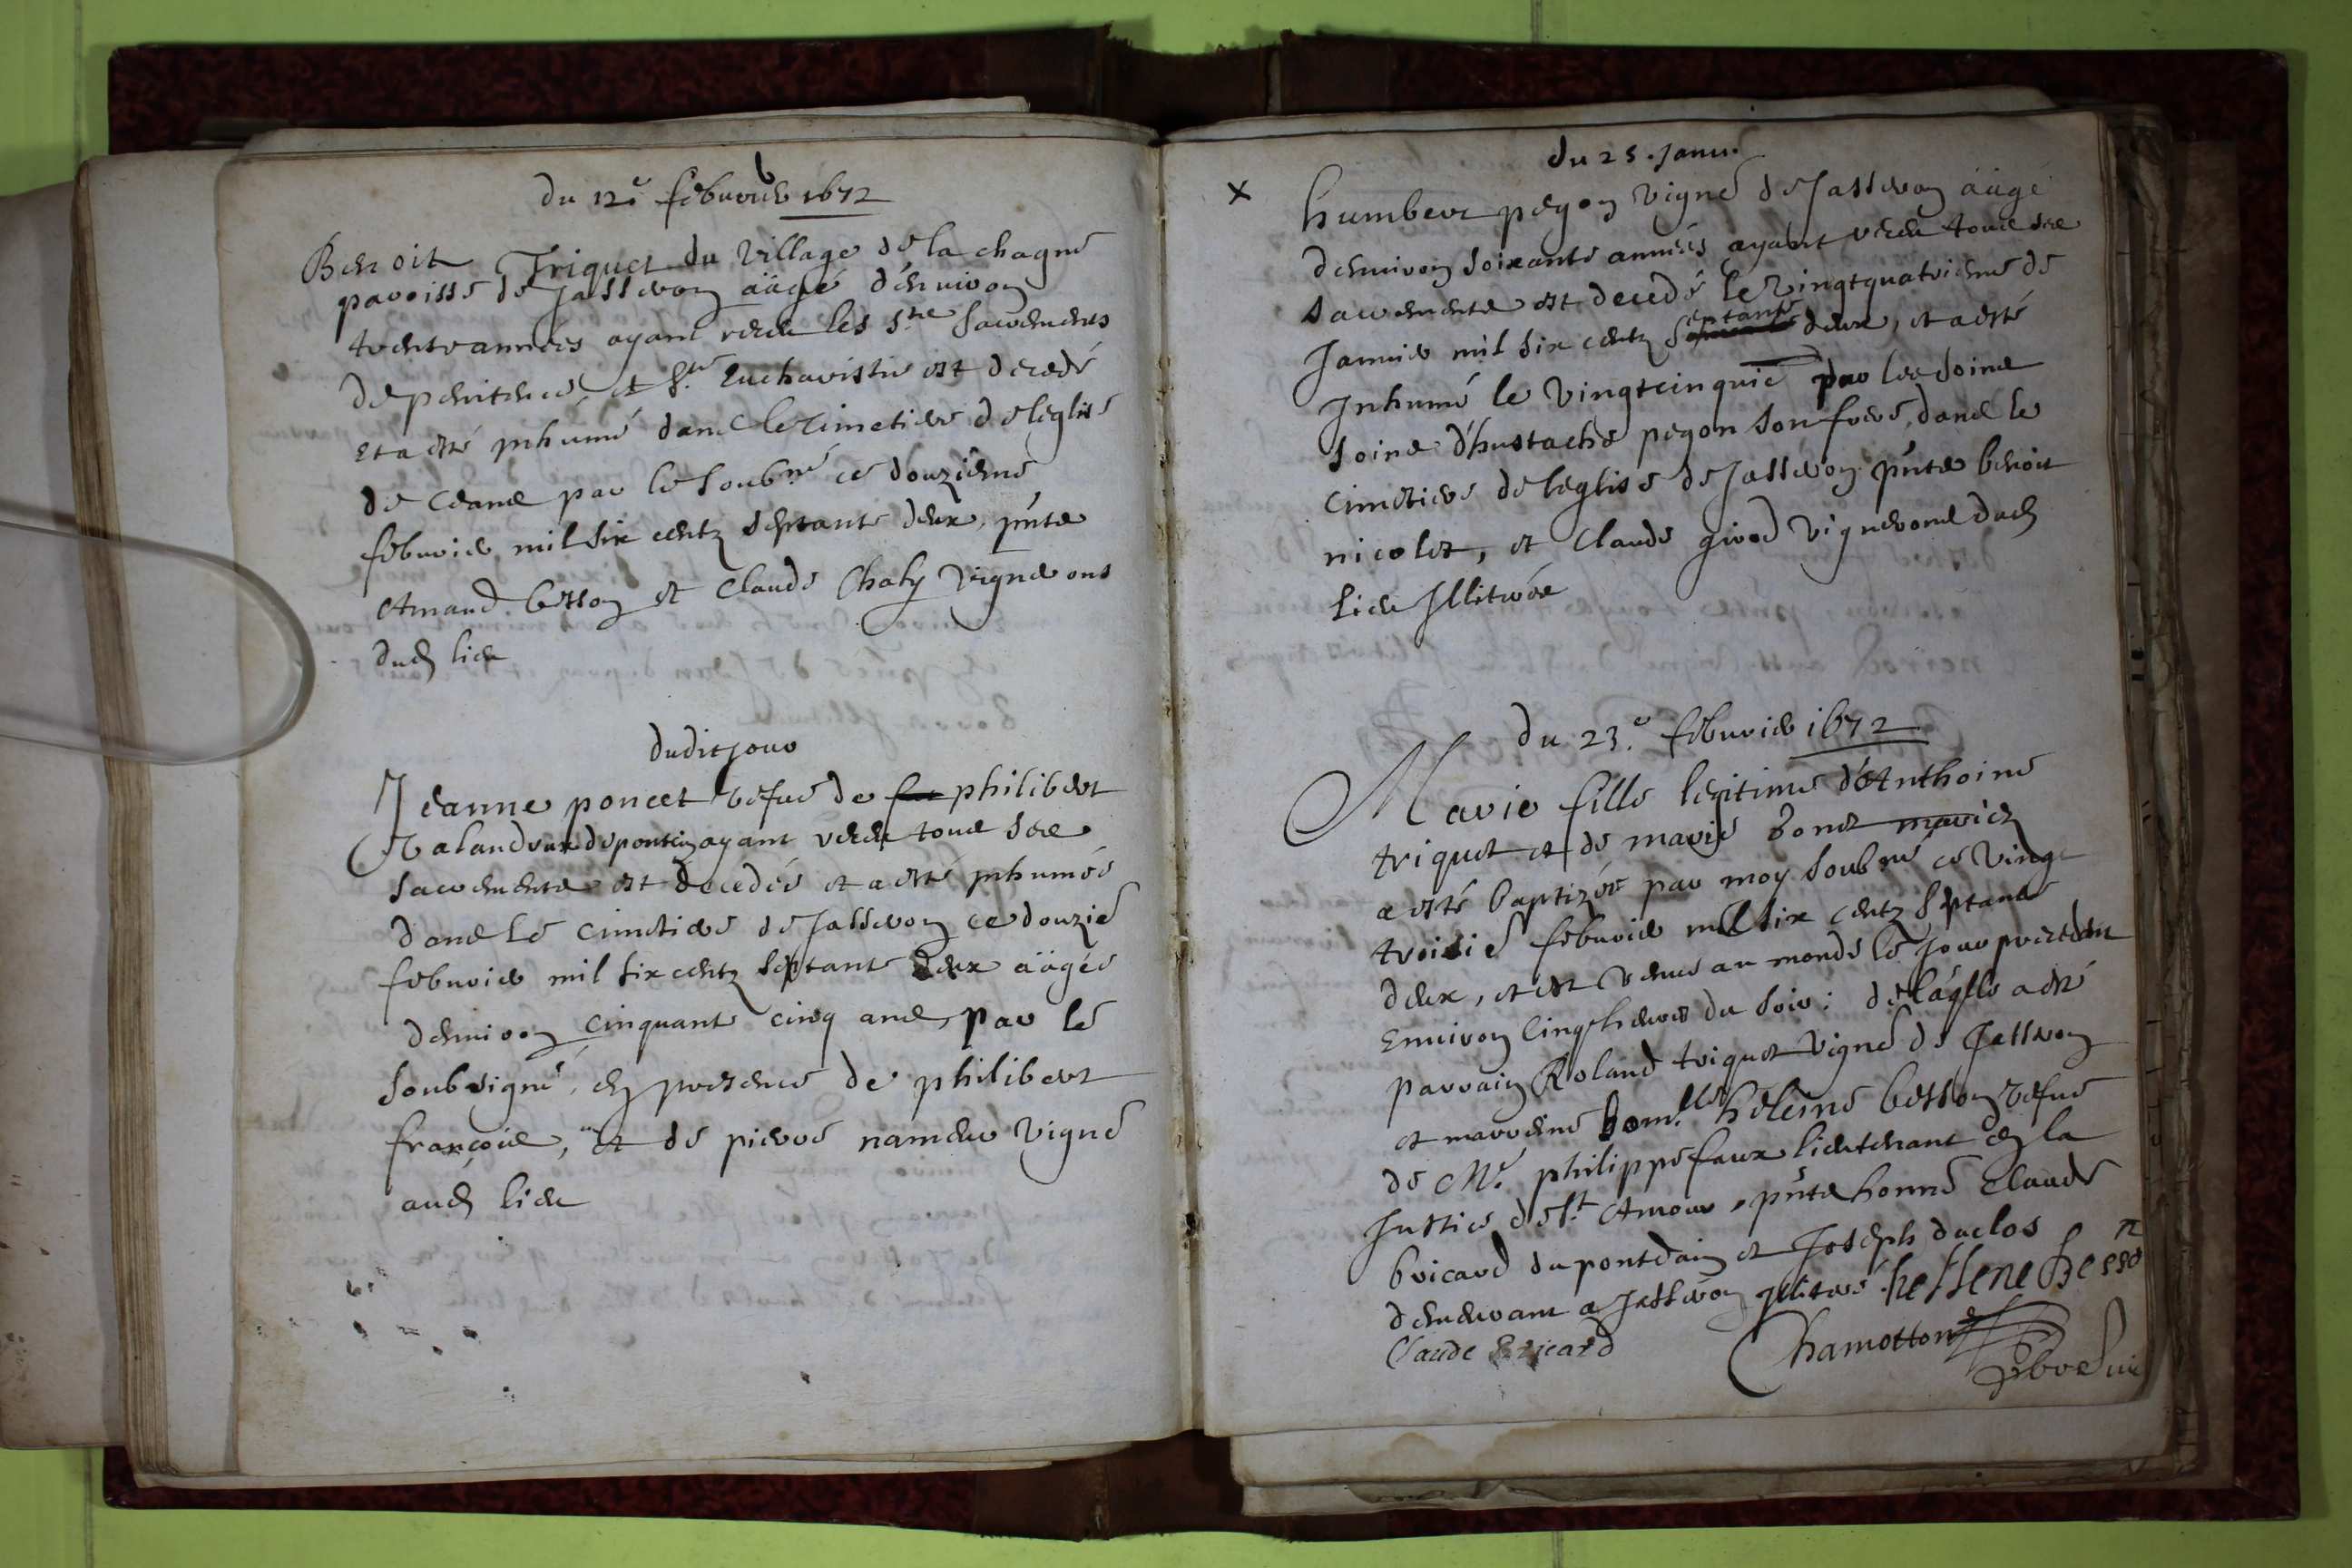 du 12.e febvrier 1672
Benoit Triquet du village de la chagne
paroisse de Jasseron aâgé d'environ
trente années ayant receu les sts sacremens
de penitence, et Ste Eucharistie est decedé
et a esté inhumé dans le cimetiere de leglise
de ceans par le soubné ce douziéme
febvrier mil six centz septante deux, pnts
Amand besson et Claude Chaty vignerons
dud lieu
dudit jour
Jeanne poncet vefue de feu philibert
de pontein ayant receu tous ses
sacrements est decedée et a esté inhumée
dans le cimetiere de Jasseron ce douzie
febvrier mil six centz septante deux aâgée
denviron cinquante cinq ans, par le
soubsigné, en presence de philibert
françois, et de pierre nameur vigne
aud lieu
du 25. Janv.
x humbert pegon vigne de Jasseron aâgé
denviron soixante années ayant receu tous ses
sacrements est decedé le vingtquatrieme de
Janvier mil six centz septante deux, et a esté
Inhumé le vingtcinquie par les soins
soins d'hustache pegon son frere, dans le
cimetiere de leglise de Jasseron pnts benoit
nicolet, et Claude girod vignerons dud
lieu Illitrés
du 23.e febvrier 1672
Marie fille legitime d'Anthoine
triquet et de marie bonet mariez
a esté baptizée par moy soubné ce vingt
troisie febvrier mil six centz septante
deux, et est venue au monde le jour precedent
environ cinq heures du soir; de laqlle a esté
parrain Roland triquet vigne de Jasseron
et marreine Dom.lle heleine besson vefue
de Me. philippe faux lieutenant en la
Justice de St Amour, pnts honne Claude
bricard du pontdain et Joseph duclos
demeurant a Jasseron illitere. hellene Besson
Claude Bricard Chamotton